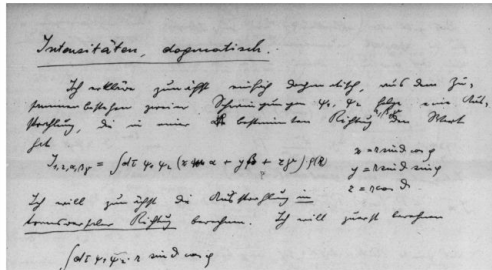 Intensitäten, dogmatisch.
Ich erkläre zunächst einfach dogmatisch, aus dem Zu-
sammenbestehen zweier Schwingungen ψ₁, ψ₂ folge eine Aus-
strahlung, die in einer bestimmten Richtung α, β, γ den Wert
hat
I₁,₂,α,β,γ = ∫dτ ψ₁ ψ₂ (x α + y β + z γ)
x = r sin ϑ cos φ
y = r sin ϑ sin φ
z = r cos ϑ
Ich will zunächst die Ausstrahlung in
transversaler Richtung berechnen. Ich will zuerst berechnen
∫dτ ψ₁ ψ₂ · r sin ϑ cos φ